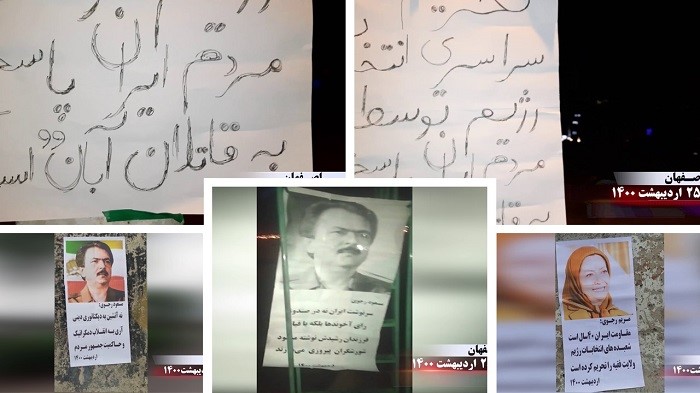 مردم ایران پاسخ
به قاتلان آبان ۹۹ است
اصفهان
تحریم
سراسری انتخابات
رژیم توسط
مردم ایران
به قاتلان
۲۵ اردیبهشت ۱۴۰۰
مسعود رجوی:
نه آتشین به دیکتاتوری دینی
آری به انقلاب دمکراتیک
و حاکمیت جمهور مردم
اردیبهشت ۱۴۰۰
اردیبهشت ۱۴۰۰
مسعود رجوی:
سرنوشت ایران نه در صندوق
رای آخوندها بلکه با قیام
فرزندان رشیدش نوشته میشود
شورشگران پیروزی می‌آورند
اردیبهشت ۱۴۰۰
اصفهان
اردیبهشت ۱۴۰۰
مریم رجوی:
مقاومت ایران ۴۰سال است
شعبده های انتخابات رژیم
ولایت فقیه را تحریم کرده است
اردیبهشت ۱۴۰۰
اردیبهشت۱۴۰۰